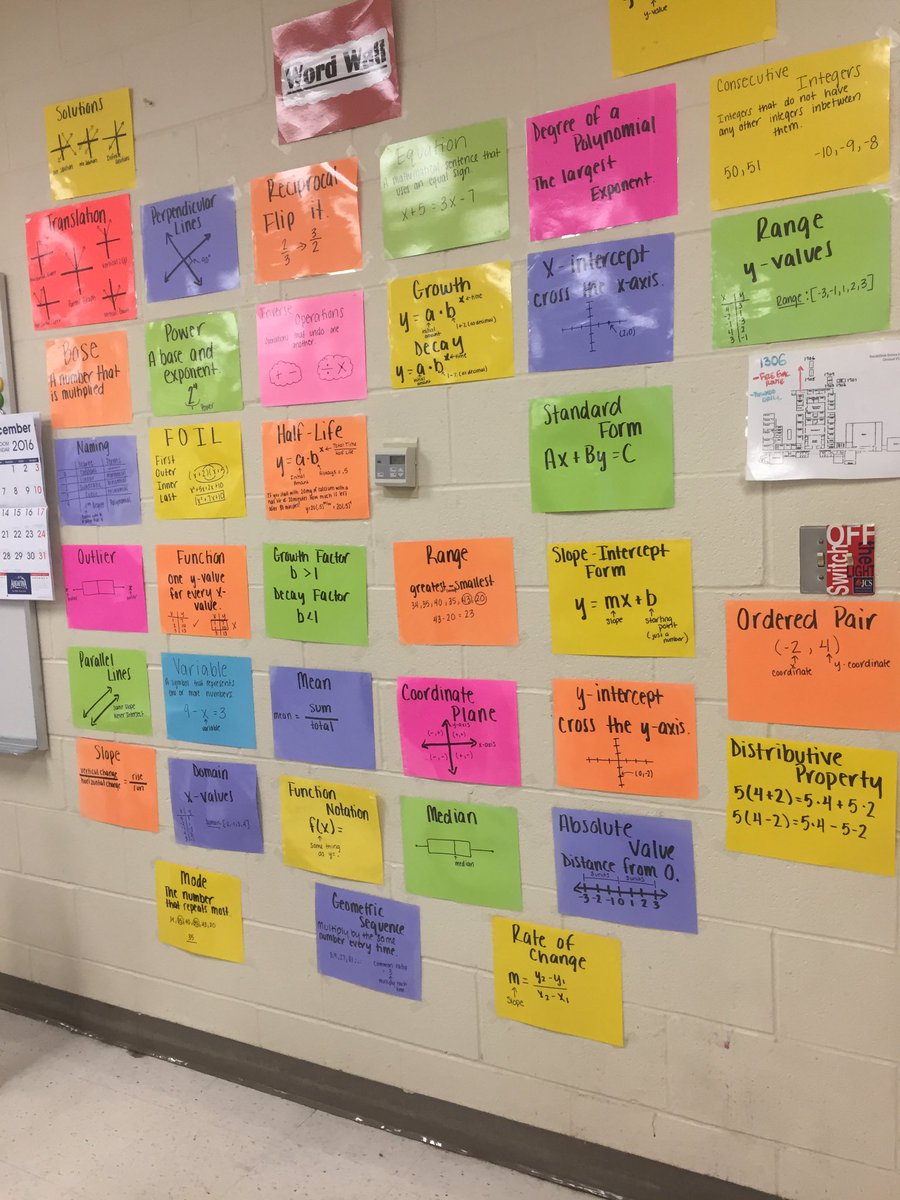 y-value
Word Wall
Solutions
Consecutive Integers
Integers that do not have
any other integers inbetween
them.
50, 51
-10, -9, -8
Degree of a
Polynomial
The largest
Exponent.
Equation
A mathematical sentence that
uses an equal sign.
x + 5 = 3x - 7
Reciprocal
Flip it.
2/3 → 3/2
Perpendicular
Lines
90°
Translation
Range
y-values
x y
Range: [-3, -1, 1, 2, 3]
X-intercept
cross the x-axis.
(2,0)
Growth
y = a · b^x ← time
initial
amount
1 + r (as decimal)
Decay
y = a · b^x ← time
initial
amount
1 - r (as decimal)
Inverse Operations
Operations that undo one
another.
+ -
÷ x
Power
A base and
exponent.
2⁴
Power
Base
A number that
is multiplied
1306
- FIRE EVAC
ROUTE
Standard
Form
Ax + By = C
Half-Life
y = a · b^x
Initial
Amount
always = .5
FOIL
First
Outer
Inner
Last
Naming
Degree
2016
1 2 3
7 8 9 10
14 15 16 17
21 22 23 24
28 29 30 31
Switch
OFF
JCS
Outlier
Function
one y-value
for every x-
value.
Growth Factor
b > 1
Decay Factor
b < 1
Range
greatest - smallest
34, 35, 40, 35, 43, 20
43 - 20 = 23
Slope-Intercept
Form
y = mx + b
slope
starting
point
(just a
number)
Ordered Pair
(-2, 4)
x
coordinate
y-coordinate
Parallel
Lines
Same slope
Never Intersect
Variable
A symbol that represents
one or more numbers.
9 - x = 3
variable
Mean
mean = sum/total
Coordinate
Plane
y-axis
(-,+) (+,+)
x-axis
(-,-) (+,-)
y-intercept
cross the y-axis.
(0,-2)
Distributive
Property
5(4+2) = 5·4 + 5·2
5(4-2) = 5·4 - 5·2
Slope
vertical change/horizontal change = rise/run
Domain
x-values
Function
Notation
f(x) =
same thing
as y=
Median
median
Absolute
Value
Distance from 0.
3 units 3 units
-3 -2 -1 0 1 2 3
Mode
The number
that repeats most.
35
Geometric
Sequence
Multiply by the same
number every time.
Common ratio
= 3
Rate of
Change
m = y₂-y₁/x₂-x₁
slope